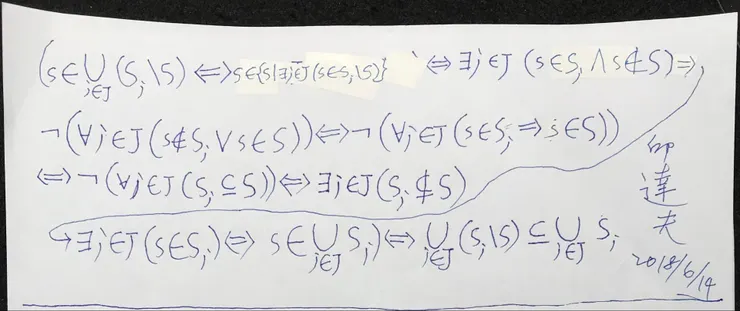 (s∈⋃_{j∈J}(S_j\S)⇔s∈{s|∃j∈J(s∈S_j\S)}⇔∃j∈J(s∈S_j∧s∉S)⇒
¬(∀j∈J(s∉S_j∨s∈S))⇔¬(∀j∈J(s∈S_j⇒s∈S))
⇔¬(∀j∈J(S_j⊆S))⇔∃j∈J(S_j⊈S)
↪∃j∈J(s∈S_j)⇔s∈⋃_{j∈J}S_j)⇔⋃_{j∈J}(S_j\S)⊆⋃_{j∈J}S_j
達夫
2018/6/14